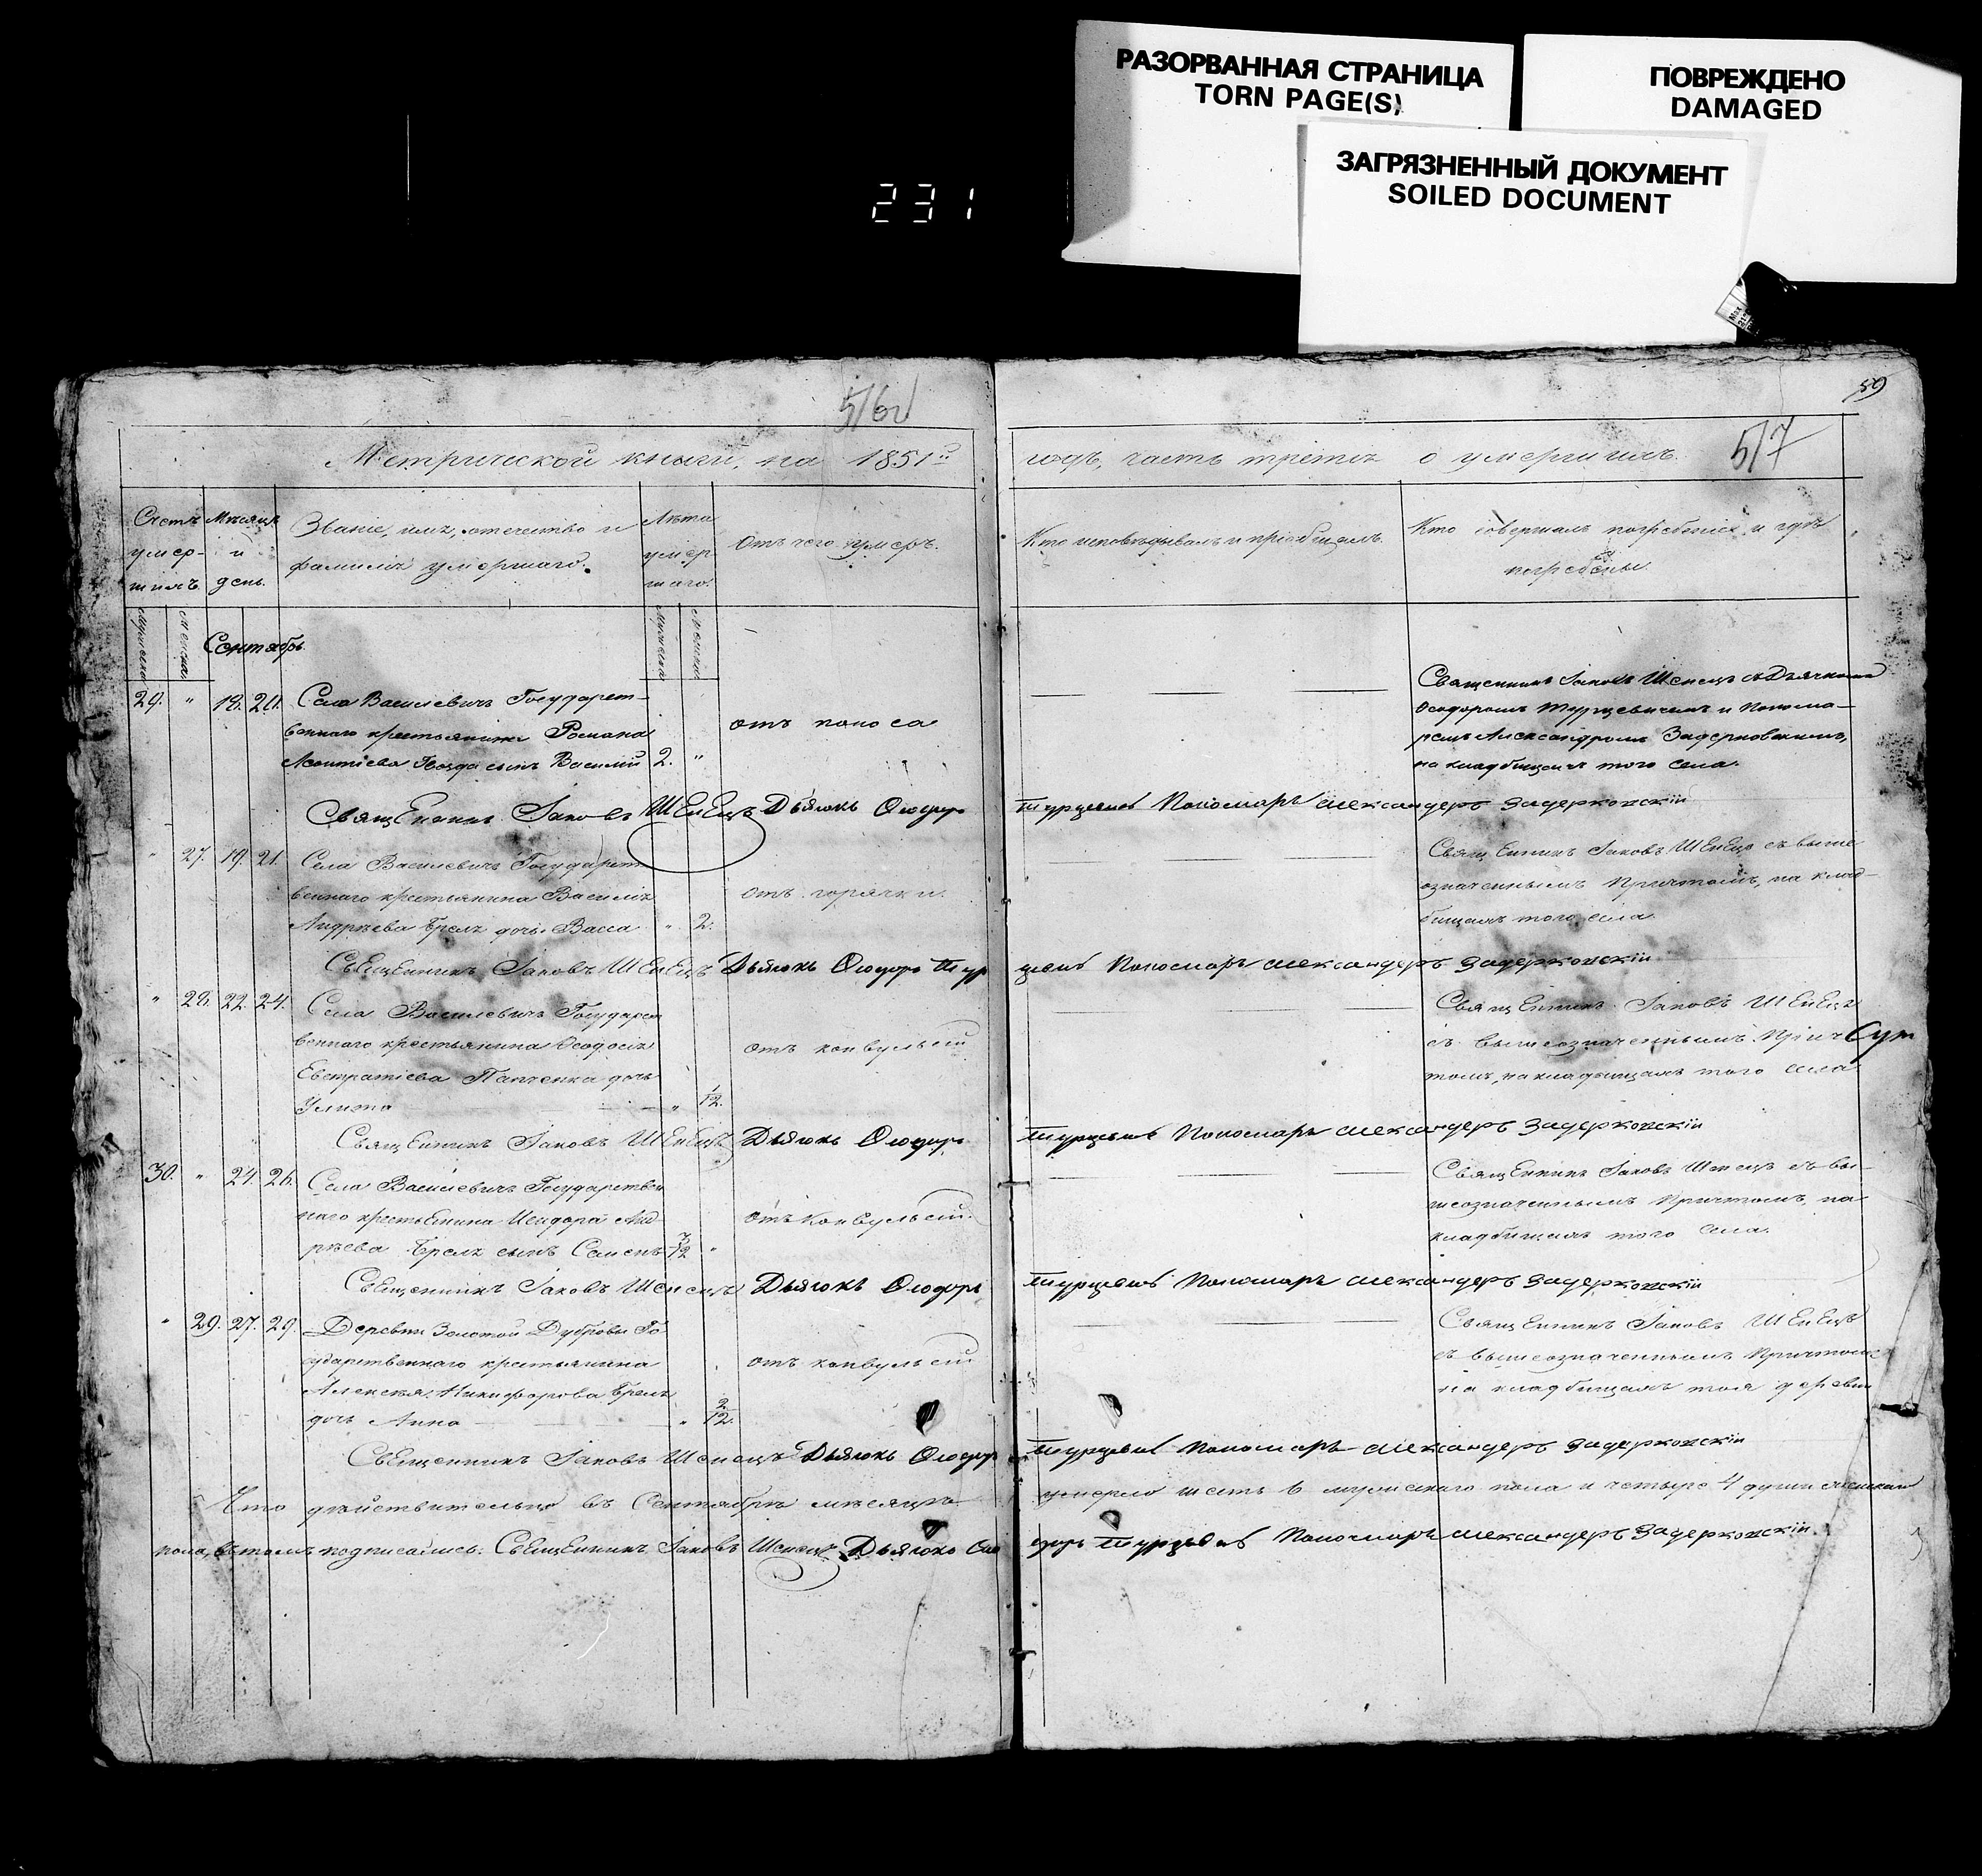 РАЗОРВАННАЯ СТРАНИЦА
TORN PAGE(S)
ПОВРЕЖДЕНО
DAMAGED
ЗАГРЯЗНЕННЫЙ ДОКУМЕНТ
SOILED DOCUMENT
231
59
516
517
Метрической книги, на 1851й
годъ, часть третья о умершихъ.
Счетъ умер-шихъ.
Мѣсяцъ и день.
Званіе, имя, отечество и
фамилія умершаго.
Лѣта умер-шаго.
Отъ чего умеръ.
Кто исповѣдывалъ и пріобщалъ.
Кто совершалъ погребеніе и гдѣ
погребены.
Сентябрь
29. " 18. 20. Села Василевичъ Государст-
веннаго крестьянина Романа
Леонтіева Гвозда сынъ Василій 2. "
отъ поноса
Священникъ Іаковъ Шенецъ съ Дьячкомъ
Ѳеодоромъ Турцевичемъ и Понома-
ремъ Александромъ Задерковскимъ,
на кладбищахъ того села.
Священникъ Іаковъ Шенецъ Дьячокъ Ѳеодоръ Турцевичъ Пономарь Александеръ Задерковскій
" 27. 19. 21. Села Василевичъ Государст-
веннаго крестьянина Василія
Андрѣева Брель дочь Васса " 2.
отъ горячки.
Священникъ Іаковъ Шенецъ съ выше
означеннымъ Причтомъ, на клад-
бищахъ того села
Священникъ Іаковъ Шенецъ Дьячокъ Ѳеодоръ Турцевичъ Пономарь Александеръ Задерковскій
" 28. 22. 24. Села Василевичъ Государст
веннаго крестьянина Ѳеодосія
Евстратіева Панченка дочь
Улита " 1/12.
отъ конвульсій
Священникъ Іаковъ Шенецъ
съ вышеозначеннымъ Прич
томъ, на кладбищахъ того села
Священникъ Іаковъ Шенецъ Дьячокъ Ѳеодоръ Турцевичъ Пономарь Александеръ Задерковскій
30. " 24. 26. Села Василевичъ Государствен
наго крестьянина Исидора Анд-
рѣева Брель сынъ Семенъ 3/12 "
отъ конвульсій.
Священникъ Іаковъ Шенецъ съ вы-
шеозначеннымъ Причтомъ, на
кладбищахъ того села.
Священникъ Іаковъ Шенецъ Дьячокъ Ѳеодоръ Турцевичъ Пономарь Александеръ Задерковскій
" 29. 27. 29. Деревни Золотой Дубровы Го-
сударственнаго крестьянина
Алексѣя Никифорова Брель
дочь Анна " 2/12.
отъ конвульсій
Священникъ Іаковъ Шенецъ
съ вышеозначеннымъ Причтомъ
на кладбищахъ тоя деревни
Священникъ Іаковъ Шенецъ Дьячокъ Ѳеодоръ Турцевичъ Пономарь Александеръ Задерковскій
Что дѣйствительно въ Сентябрѣ мѣсяцѣ умерло шесть 6 мужескаго пола и четыре 4 души женскаго
пола, въ томъ подписались: Священникъ Іаковъ Шенецъ Дьячокъ Ѳеодоръ Турцевичъ Пономарь Александеръ Задерковскій.